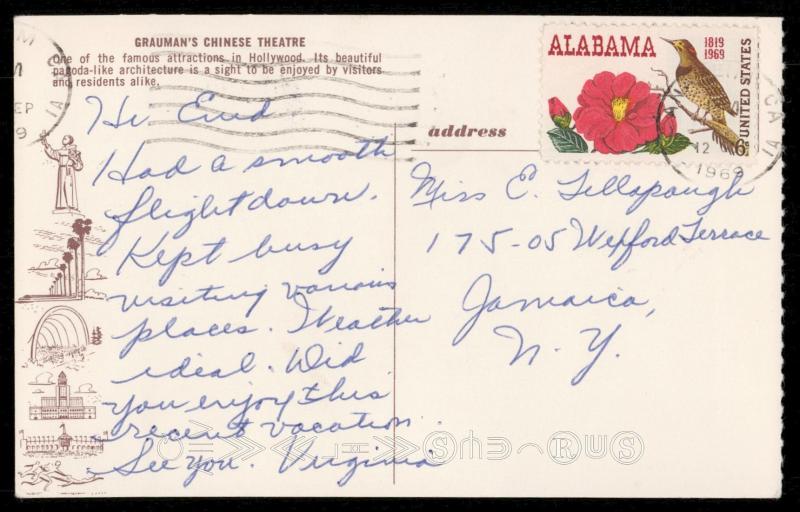 GRAUMAN'S CHINESE THEATRE
One of the famous attractions in Hollywood. Its beautiful
pagoda-like architecture is a sight to be enjoyed by visitors
and residents alike.
Hi Enid
Had a smooth
flight down.
Kept busy
visiting various
places. Weather
ideal. Did
you enjoy this
recent vacation
See you. Virginia
address
Miss E. Tillapaugh
175-05 Wexford Terrace
Jamaica,
N.Y.
ALABAMA
1819
1969
UNITED STATES
6c
SEP
12
1969